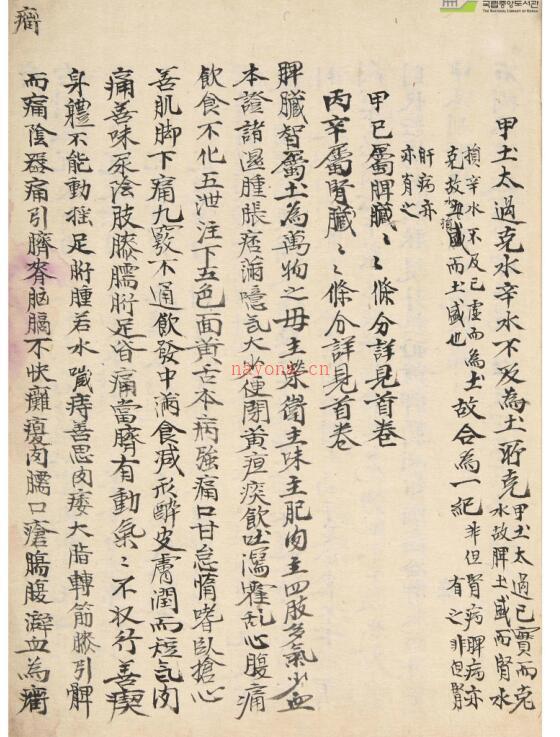 국립중앙도서관
THE NATIONAL LIBRARY OF KOREA
癎
甲土太過克水辛水不及為土所克 甲土太過已實而克
水故脾土盛而腎水
損辛水不及已虛而為土故合為一紀 非但腎病脾病亦
有之非但腎
肝病亦
亦有之
甲已屬脾臟〻〻條分詳見首卷
丙辛屬腎臟〻〻條分詳見首卷
脾臟智屬土為萬物之母主榮衛主味主肥肉主四肢多氣少血
本證諸濕腫脹痞滿噫氣大小便閉黃疸痰飲吐瀉霍乱心腹痛
飲食不化五泄注下五色面黃舌本病強痛口甘怠惰嗜臥搶心
善肌脚下痛九竅不通飲發中滿食減形醉皮膚潤而短氣肉
痛善味尿陰肢膝臑胻足皆痛當臍有動氣〻不收行善瘈
身體不能動搖足胻腫若水嚏痔善思肉痿大脂轉筋膝引髀
而痛陰器痛引臍脊胸膈不快癱瘓肉臑口瘡腸腹澼血為癎
nayona.cn